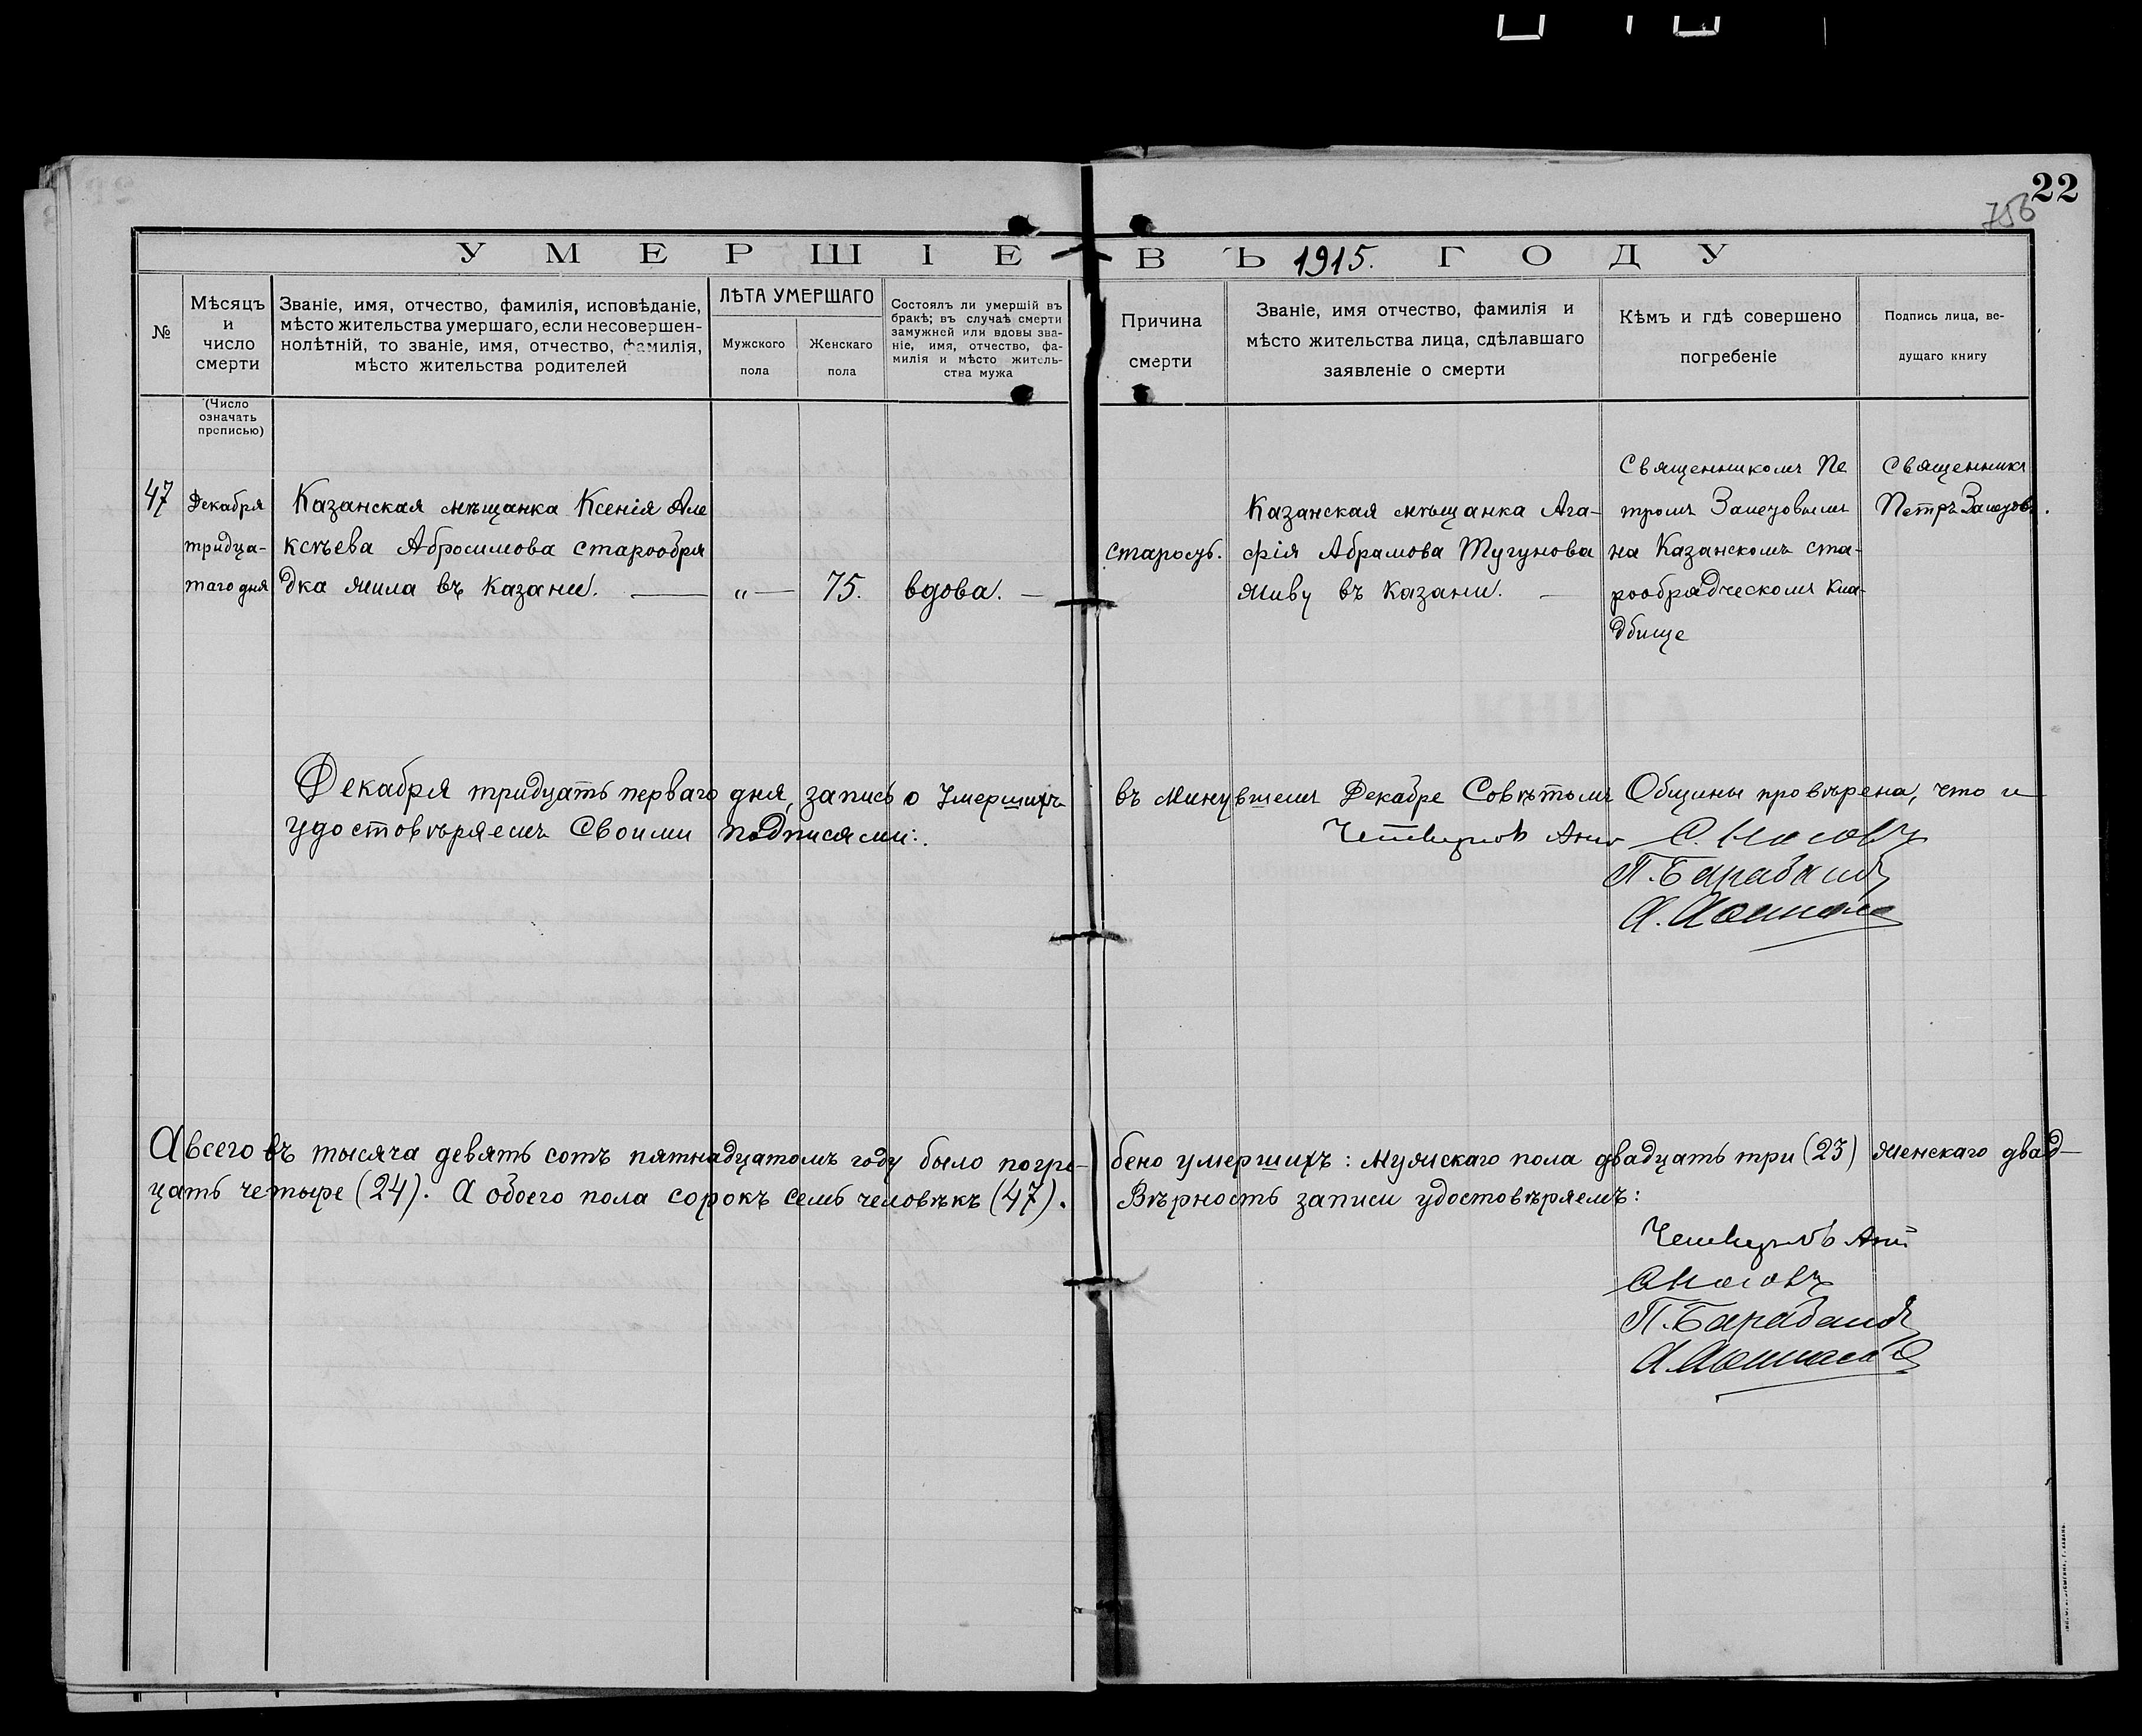 22
756
УМЕРШІЕ ВЪ 1915. ГОДУ
№
Мѣсяцъ
и
число
смерти
(Число
означать
прописью)
Званіе, имя, отчество, фамилія, исповѣданіе,
мѣсто жительства умершаго, если несовершен-
нолѣтній, то званіе, имя, отчество, фамилія,
мѣсто жительства родителей
ЛѢТА УМЕРШАГО
Мужского
пола
Женскаго
пола
Состоялъ ли умершій въ
бракѣ; въ случаѣ смерти
замужней или вдовы зва-
ніе, имя, отчество, фа-
милія и мѣсто житель-
ства мужа
Причина
смерти
Званіе, имя отчество, фамилія и
мѣсто жительства лица, сдѣлавшаго
заявленіе о смерти
Кѣмъ и гдѣ совершено
погребеніе
Подпись лица, ве-
дущаго книгу
47
Декабря
тридца-
таго дня
Казанская мѣщанка Ксенія Але
ксѣева Абросимова старообря
дка жила въ Казани.
„ —
75.
вдова. —
старость.
Казанская мѣщанка Ага-
фія Абрамова Тугунова
живу въ Казани. —
Священникомъ Пе
тромъ Залетовымъ
на Казанскомъ ста-
рообрядческомъ кла-
дбище
Священникъ
Петръ Залетовъ.
Декабря тридцать перваго дня, запись о умершихъ въ минувшемъ Декабре Совѣтомъ Общины провѣрена, что и
удостовѣряемъ Своими подписями:.
С. Носовъ
П. Барабанов
А всего въ тысяча девять сотъ пятнадцатомъ году было погре-бено умершихъ: мужскаго пола двадцать три (23) женскаго двад-
цать четыре (24). А обоего пола сорокъ семь человѣкъ (47). Вѣрность записи удостовѣряемъ:
С Носовъ
П. Барабанов